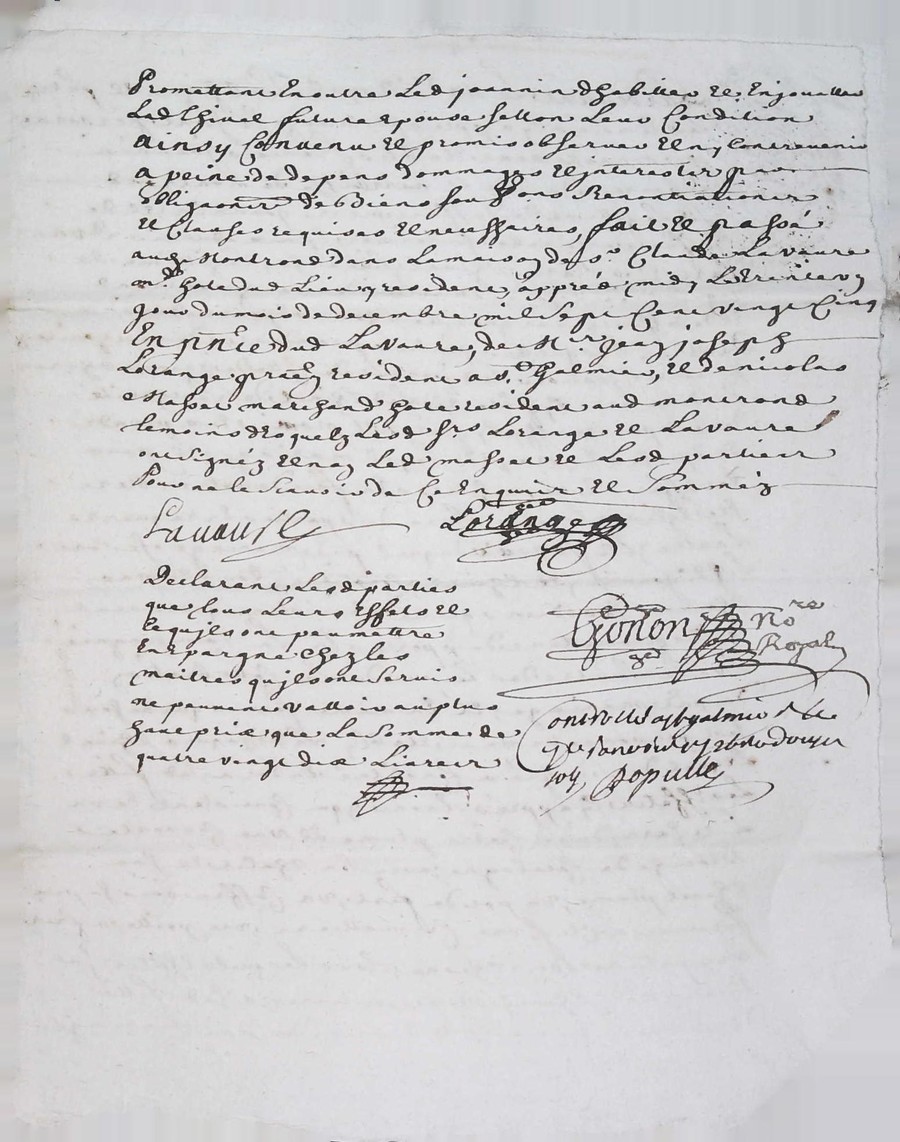 Promettant En outre Led joannin d habiller et Enjoualler
Lad Thival future Epouse sellon Leur Condition
ainsy Convenu et promis observer et ny Contrevenir
a peine de depens dommages et interests par
obligaõns de Biens soubs ons Renontiations
et Clauses requises et necessaires, fait et passé
aud Montrond dans La maison de sr. Claude La Vaure
md. hote dud Lieu y resident, apprés midy Le trente un
jour du mois de decembre mil sept Cent vingt Cinq
En pñce dud LaVaure, de Mr jean joseph
Lorange resident a st. Galmier, et de nicolas
Masset marchand hote resident aud montrond
temoins desquels Lesd srs Lorange et LaVaure
ont signéz et non Led masset et Lesd parties
Pour ne le scavoir de Ce Enquis et Sommés
Lavaure Lorange
Declarant Lesd parties
que tous Leurs Effets et
ce qu'ils ont peu mettre
En Epargne Chez Les
maitres qu'ils ont servis
ne peuvent valloir au plus
haut prix que La Somme de
quatre vingt dix Livres
Gonon No re
Royal
Controllé a st galmier le
sols
Populle